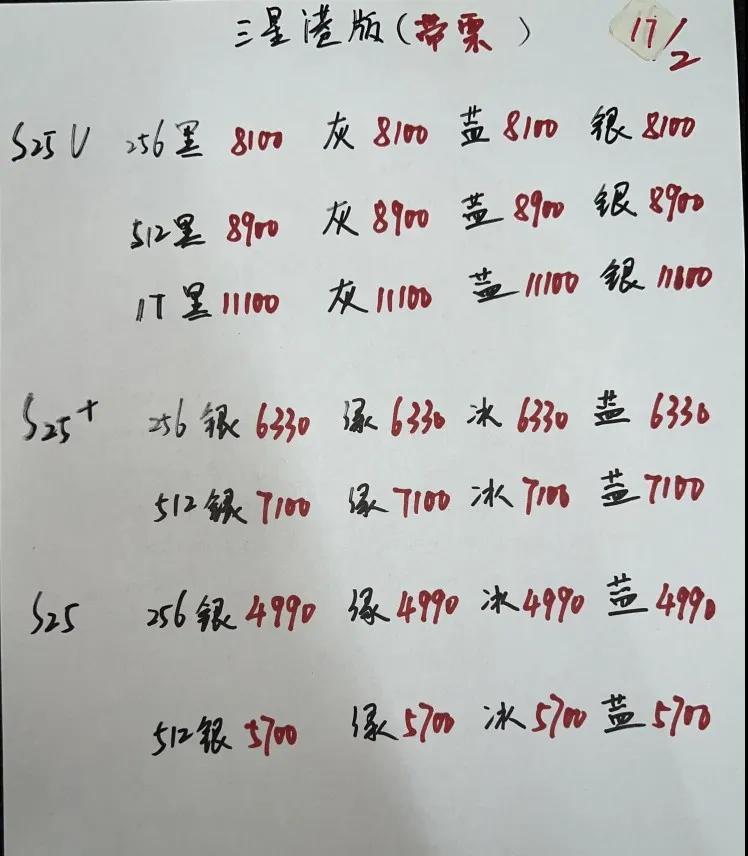 三星港版(带票) 17/2
S25U 256黑 8100 灰 8100 蓝 8100 银 8100
512黑 8900 灰 8900 蓝 8900 银 8900
1T 黑 11100 灰 11100 蓝 11100 银
S25+ 256 银 6330 绿 6330 冰 6330 蓝 6330
512银 7100 绿 7100 冰 7100 蓝 7100
S25 256银 4990 绿 4990 冰 4990 蓝 4990
512银 5700 绿 5700 冰 5700 蓝 5700